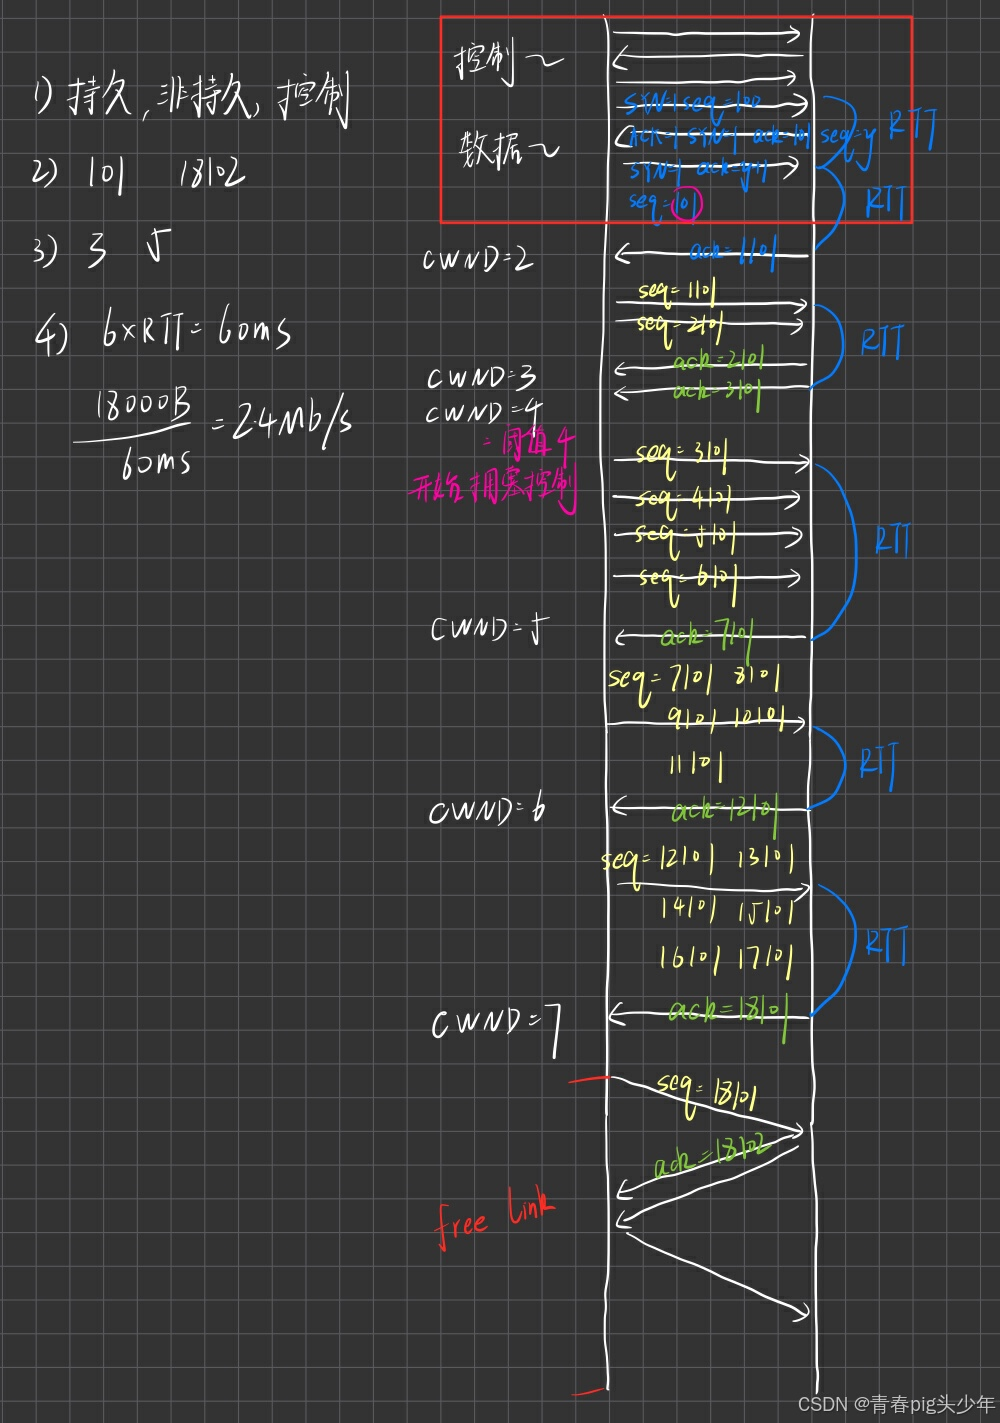 1) 持久,非持久,控制
2) 101 18102
3) 3 5
4) 6×RTT=60ms
18000B
60ms
=2.4Mb/s
控制~
数据~
SYN=1 seq=100
ACK=1 SYN=1 ack=101 seq=y
RTT
SYN=1 ack=y+1
seq=101
RTT
CWND=2
ack=1101
seq=1101
seq=2101
RTT
ack=2101
CWND=3
ack=3101
CWND=4
=阈值4
开始拥塞控制
seq=3101
seq=4101
seq=5101
seq=6101
RTT
CWND=5
ack=7101
seq=7101 8101
9101 10101
11101
RTT
CWND=6
ack=12101
seq=12101 13101
14101 15101
16101 17101
RTT
CWND=7
ack=18101
seq=18101
ack=18102
free link
CSDN @青春pig头少年